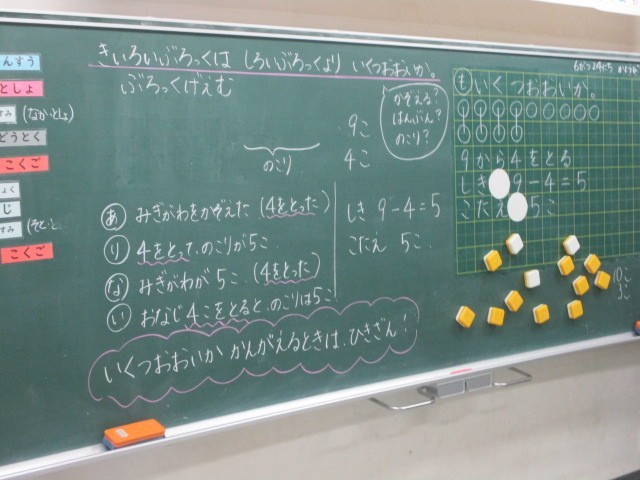 んすう
としょ
すみ (なかいとしょ)
どうとく
こくご
こくご
きいろいぶろっくは しろいぶろっくより いくつおおいか。
ぶろっくげえむ
かぞえる?
はんぶん?
のこり?
9こ
4こ
のこり
あ みぎがわをかぞえた (4をとった)
り 4をとって、のこりが5こ
な みぎがわが 5こ (4をとった)
い おなじ4こをとると、のこりは5こ
しき 9-4=5
こたえ 5こ
いくつおおいか かんがえるときは、ひきざん!
6がつ24にち
も いくつおおいか。
9から4をとる
しき 9-4=5
こたえ 5こ